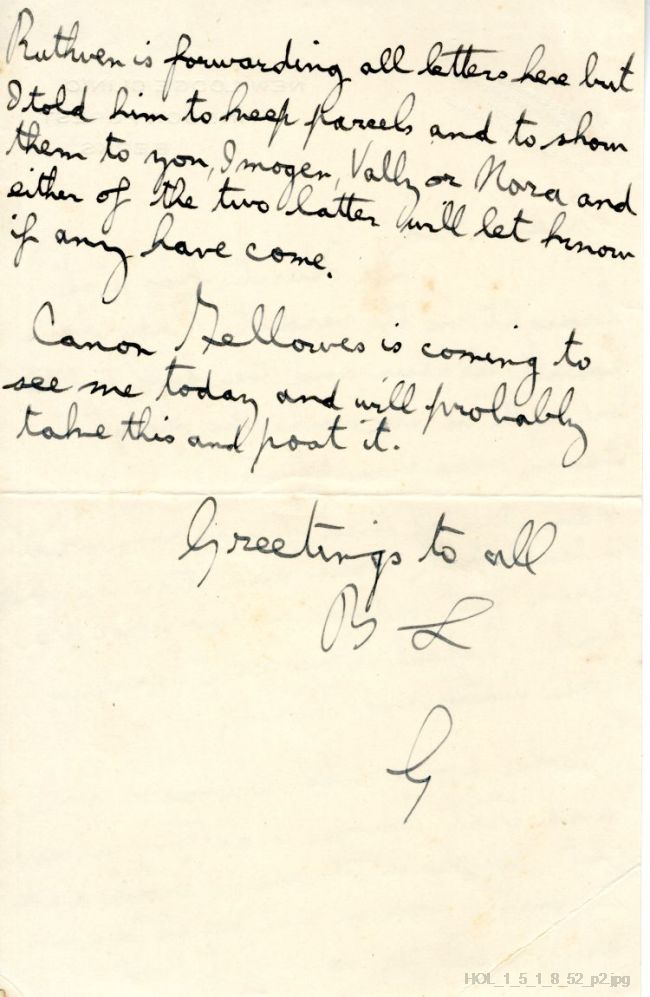 Ruthven is forwarding all letters here but
I told him to keep parcels and to show
them to you, Imogen, Vally or Nora and
either of the two latter will let know
if any have come.
Canon Fellowes is coming to
see me today and will probably
take this and post it.
Greetings to all
B L
G
HOL_1_5_1_8_52_p2.jpg